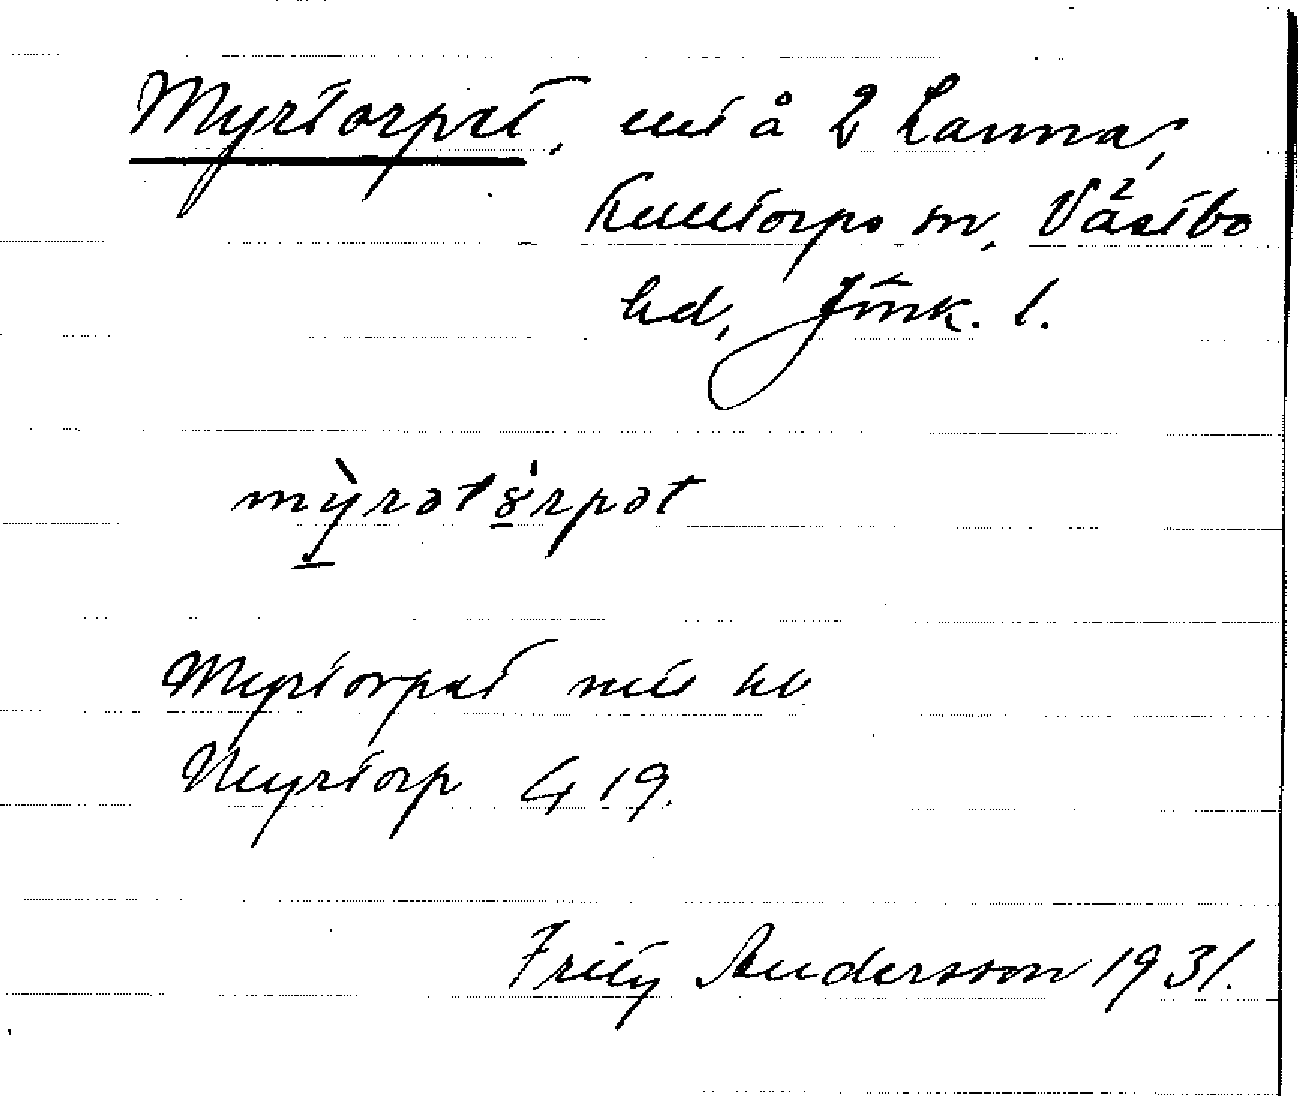 Myrtorpet, ut å 2 Lanna,
Kulltorps sn, Västbo
hd, Jönk. l.
my̠rətɤ̠rpət
Myrtorpet
Myrtorp G 19.
Fritz Andersson 1931.